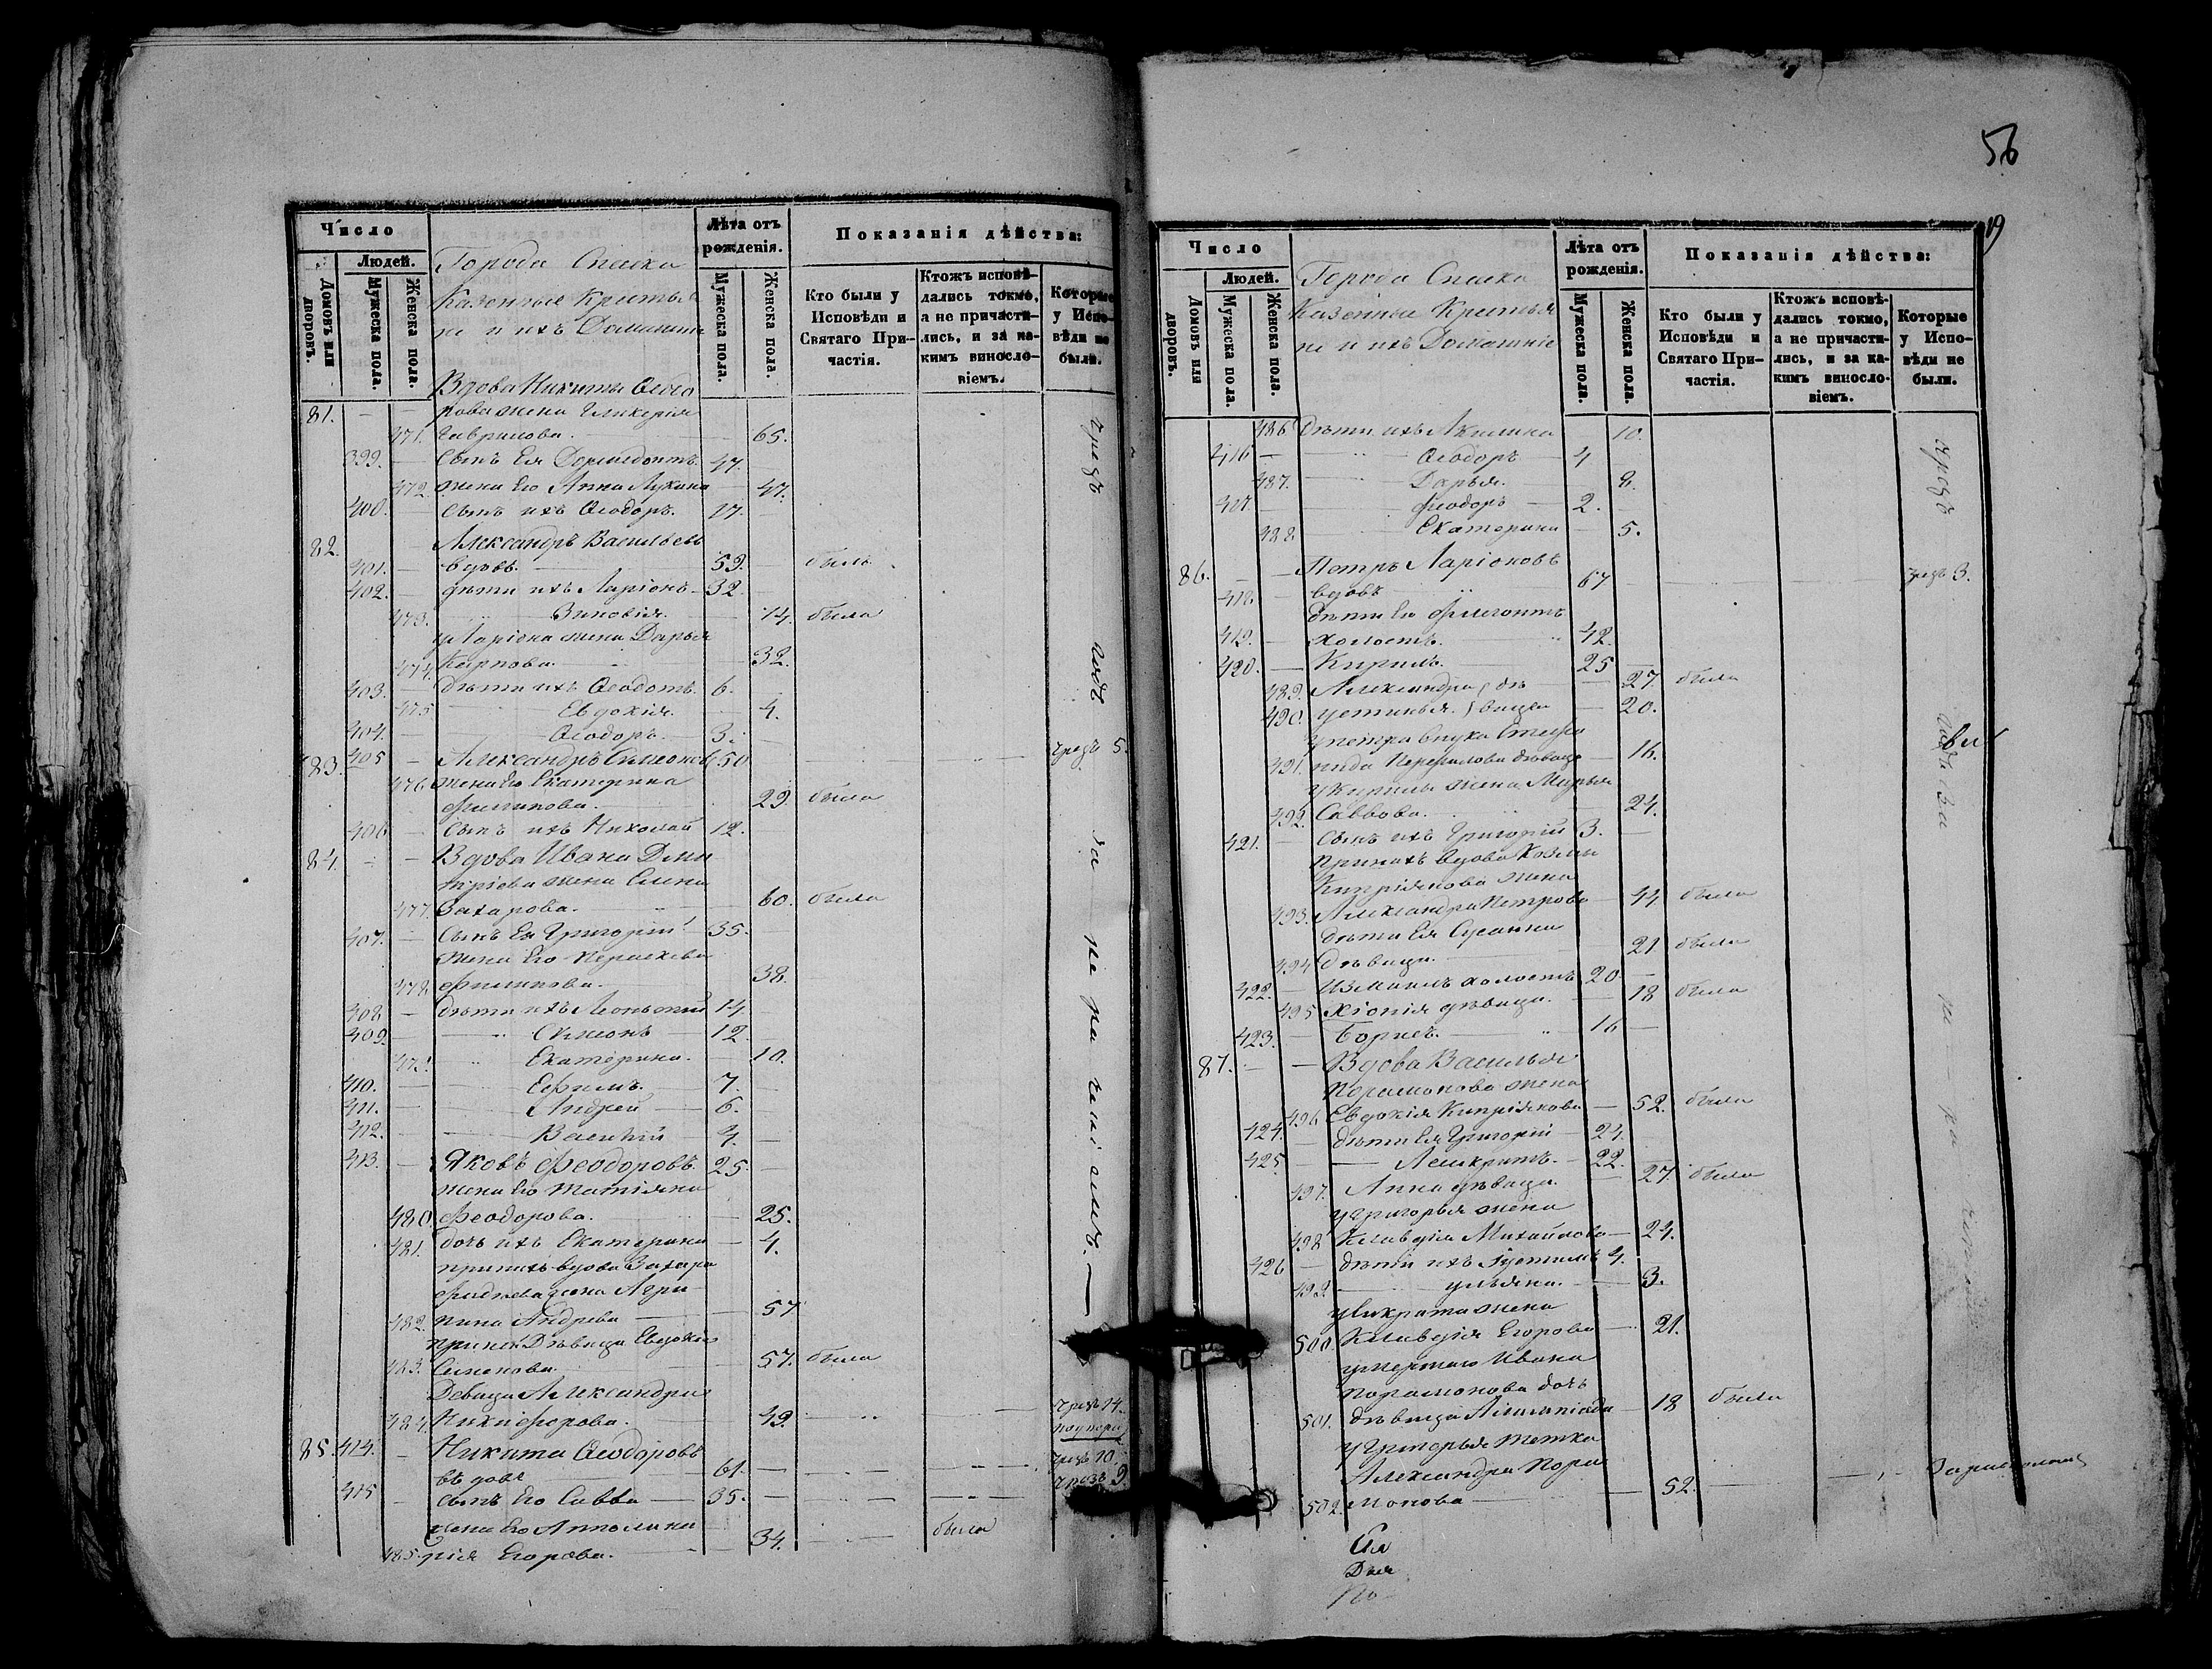 Число
Людей.
Домовъ или дворовъ.
Мужеска пола.
Женска пола.
Города Спаска
Казенные Крестья
не и ихъ Домашніе
Лѣта отъ рожденія.
Мужеска пола.
Женска пола.
Показанія дѣйства:
Кто были у Исповѣди и Святаго Причастія.
Ктожъ исповѣдались токмо, а не причастились, и за какимъ винословіемъ.
Которые у Исповѣди не были.
Вдова Никиты Ѳедо
81. — — рова жена Гликерія
471. Гаврилова. 65.
399. — Сынъ Ея Дормедонтъ. 47.
472. жена Его Анна Лукина 47.
400. — сынъ ихъ Ѳеодоръ. 17.
82. Александръ Васильевъ
401. — вдовъ. 59. былъ
402. — дѣти ихъ Ларіонъ 32.
473. Зиновія. 14. была
у Ларіона жена Дарья
474. Карпова. 32.
403. — Дѣти ихъ Ѳеодотъ. 6.
475. Евдокія. 4.
404. — Ѳеодоръ. 3.
83. 405 — Александръ Симеоновъ 50 чрезъ 5.
476. Жена Его Екатерина
Филипова. 29. была
406 — Сынъ ихъ Николай 12.
84. — — Вдова Ивана Дми
тріева жена Елена
477. Захарова. 60. была
407. — Сынъ Ея Григорій 35.
Жена Его Параскева
478. Филипова. 38.
408 — Дѣти ихъ Леонтій 14
409. — Симеонъ 12.
Екатерина. 10.
410. — Ефимъ. 7.
411. — Андрей 6.
412. — Василій 4.
413. — Яковъ Феодоровъ. 25.
жена Его Татіяна
480. Феодорова. 25.
481. дочь ихъ Екатерина 4.
при нихъ вдова Захара
жена Агри
482. пина Андрева 57
при ней Дѣвица Евдокія
483. Симонова. 57. была
Девица Александра
484. Никифорова. 49 чрезъ 14.
85. 414. — Никита Ѳеодоровъ чрезъ 10.
вдовъ 61. чрезъ 9
415 — сынъ Его Савва 35.
жена Его Апполина
485. рія Егорова. 34. была
чрезъ годъ за не ра чені емъ.
56
19
Число
Людей.
Домовъ или дворовъ.
Мужеска пола.
Женска пола.
Города Спаска
Казенные Крестья
не и ихъ Домашніе
Лѣта отъ рожденія.
Мужеска пола.
Женска пола.
Показанія дѣйства:
Кто были у Исповѣди и Святаго Причастія.
Ктожъ исповѣдались токмо, а не причастились, и за какимъ винословіемъ.
Которые у Исповѣди не были.
486 Дѣти ихъ Акилина 10.
416 — Ѳеодоръ 4
487. Дарья. 8.
417 — Феодоръ 2.
488. Екатерина 5.
86. — — Петръ Ларіоновъ чрезъ 3.
418 — вдовъ 67
дѣти Его Флегонтъ
419. — холостъ. 42
420. — Кирилъ. 25
489. Александра дѣ 27. была
490. Устинья. вицы 20.
у Петра внука Степа
491. нида Перфилова дѣвица 16.
у Кирилы жена Марья
492. Саввова. 24.
421. — сынъ ихъ Григорій 3.
при нихъ вдова Козьмы
Кипріянова жена
493. Александра Петрова 44 была
дѣти Ея Сусанна
494 Дѣвица. 21 была
422. — Измаилъ холостъ 20.
495 Хіонія дѣвица. 18 была
423. — Борисъ. 16
87. — — Вдова Василья
Парамонова жена
496 Евдокія Кипріянова 52. была
424. — дѣти Ея Григорій 24.
425. — 22.
497. Анна дѣвица. 27. была
у Григорья жена
498 Клавдія Михайлова 24.
426 — дѣти ихъ Іустинъ 4.
499 ульяна. 3.
жена
500. Клавдія Егорова 21.
умершаго Ивана
Парамонова дочь
501. дѣвица Алимпіада 18 была
у Григорья тетка
Александра Пара
502. монова 52.
чрезъ